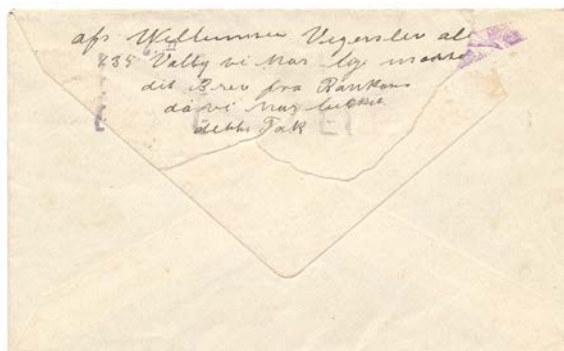 afs Willumsen Vigerslev ale
135 Valby vi har lige
dit Brev fra
da vi har lukket
dette Tak